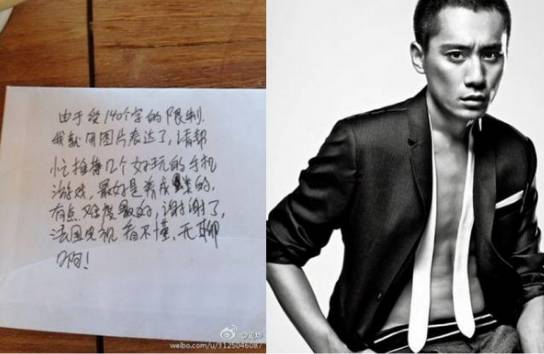 由于受140个字的限制.
我就用图片表达了,请帮
忙推荐几个好玩的手机
游戏,最好是养成类的.
有点难度最好的,谢谢了,
法国电视看不懂,无聊
啊!
weibo.com/u/1125046087